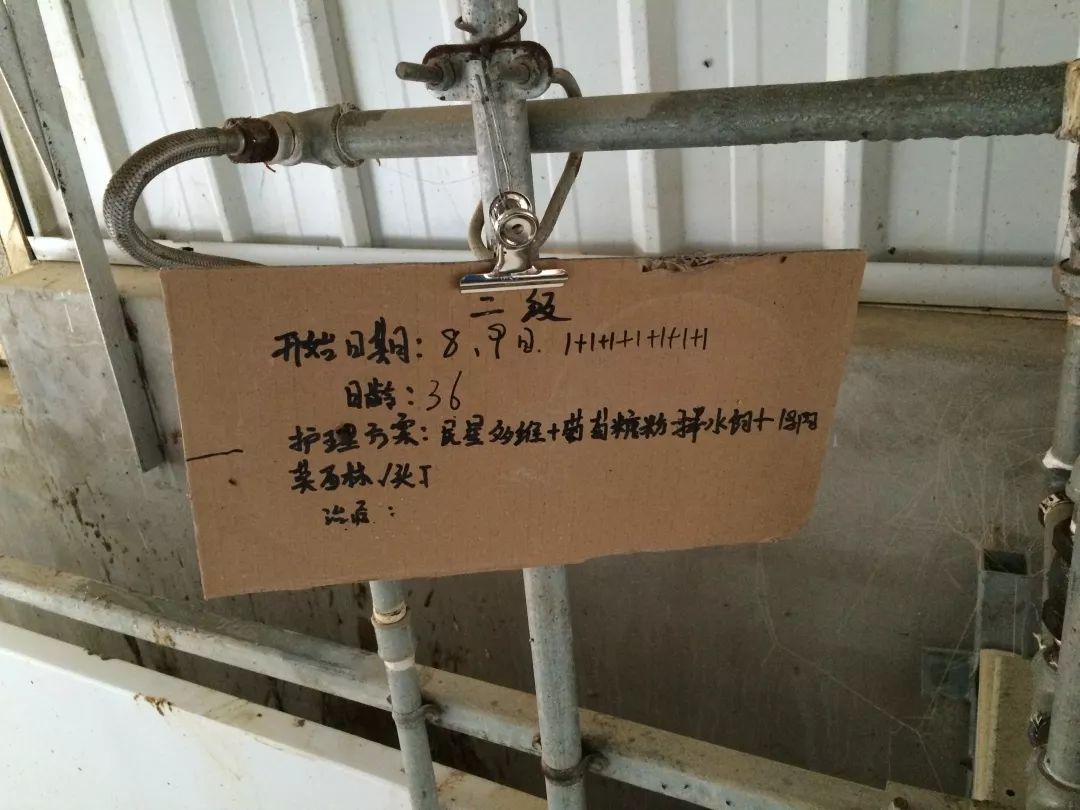 二级
开始日期：8、9日. 1+1+1+1+1+1+1
日龄：36
护理方案：民星多维+葡萄糖粉 拌水饲+
莫西林/头丁
治疗：